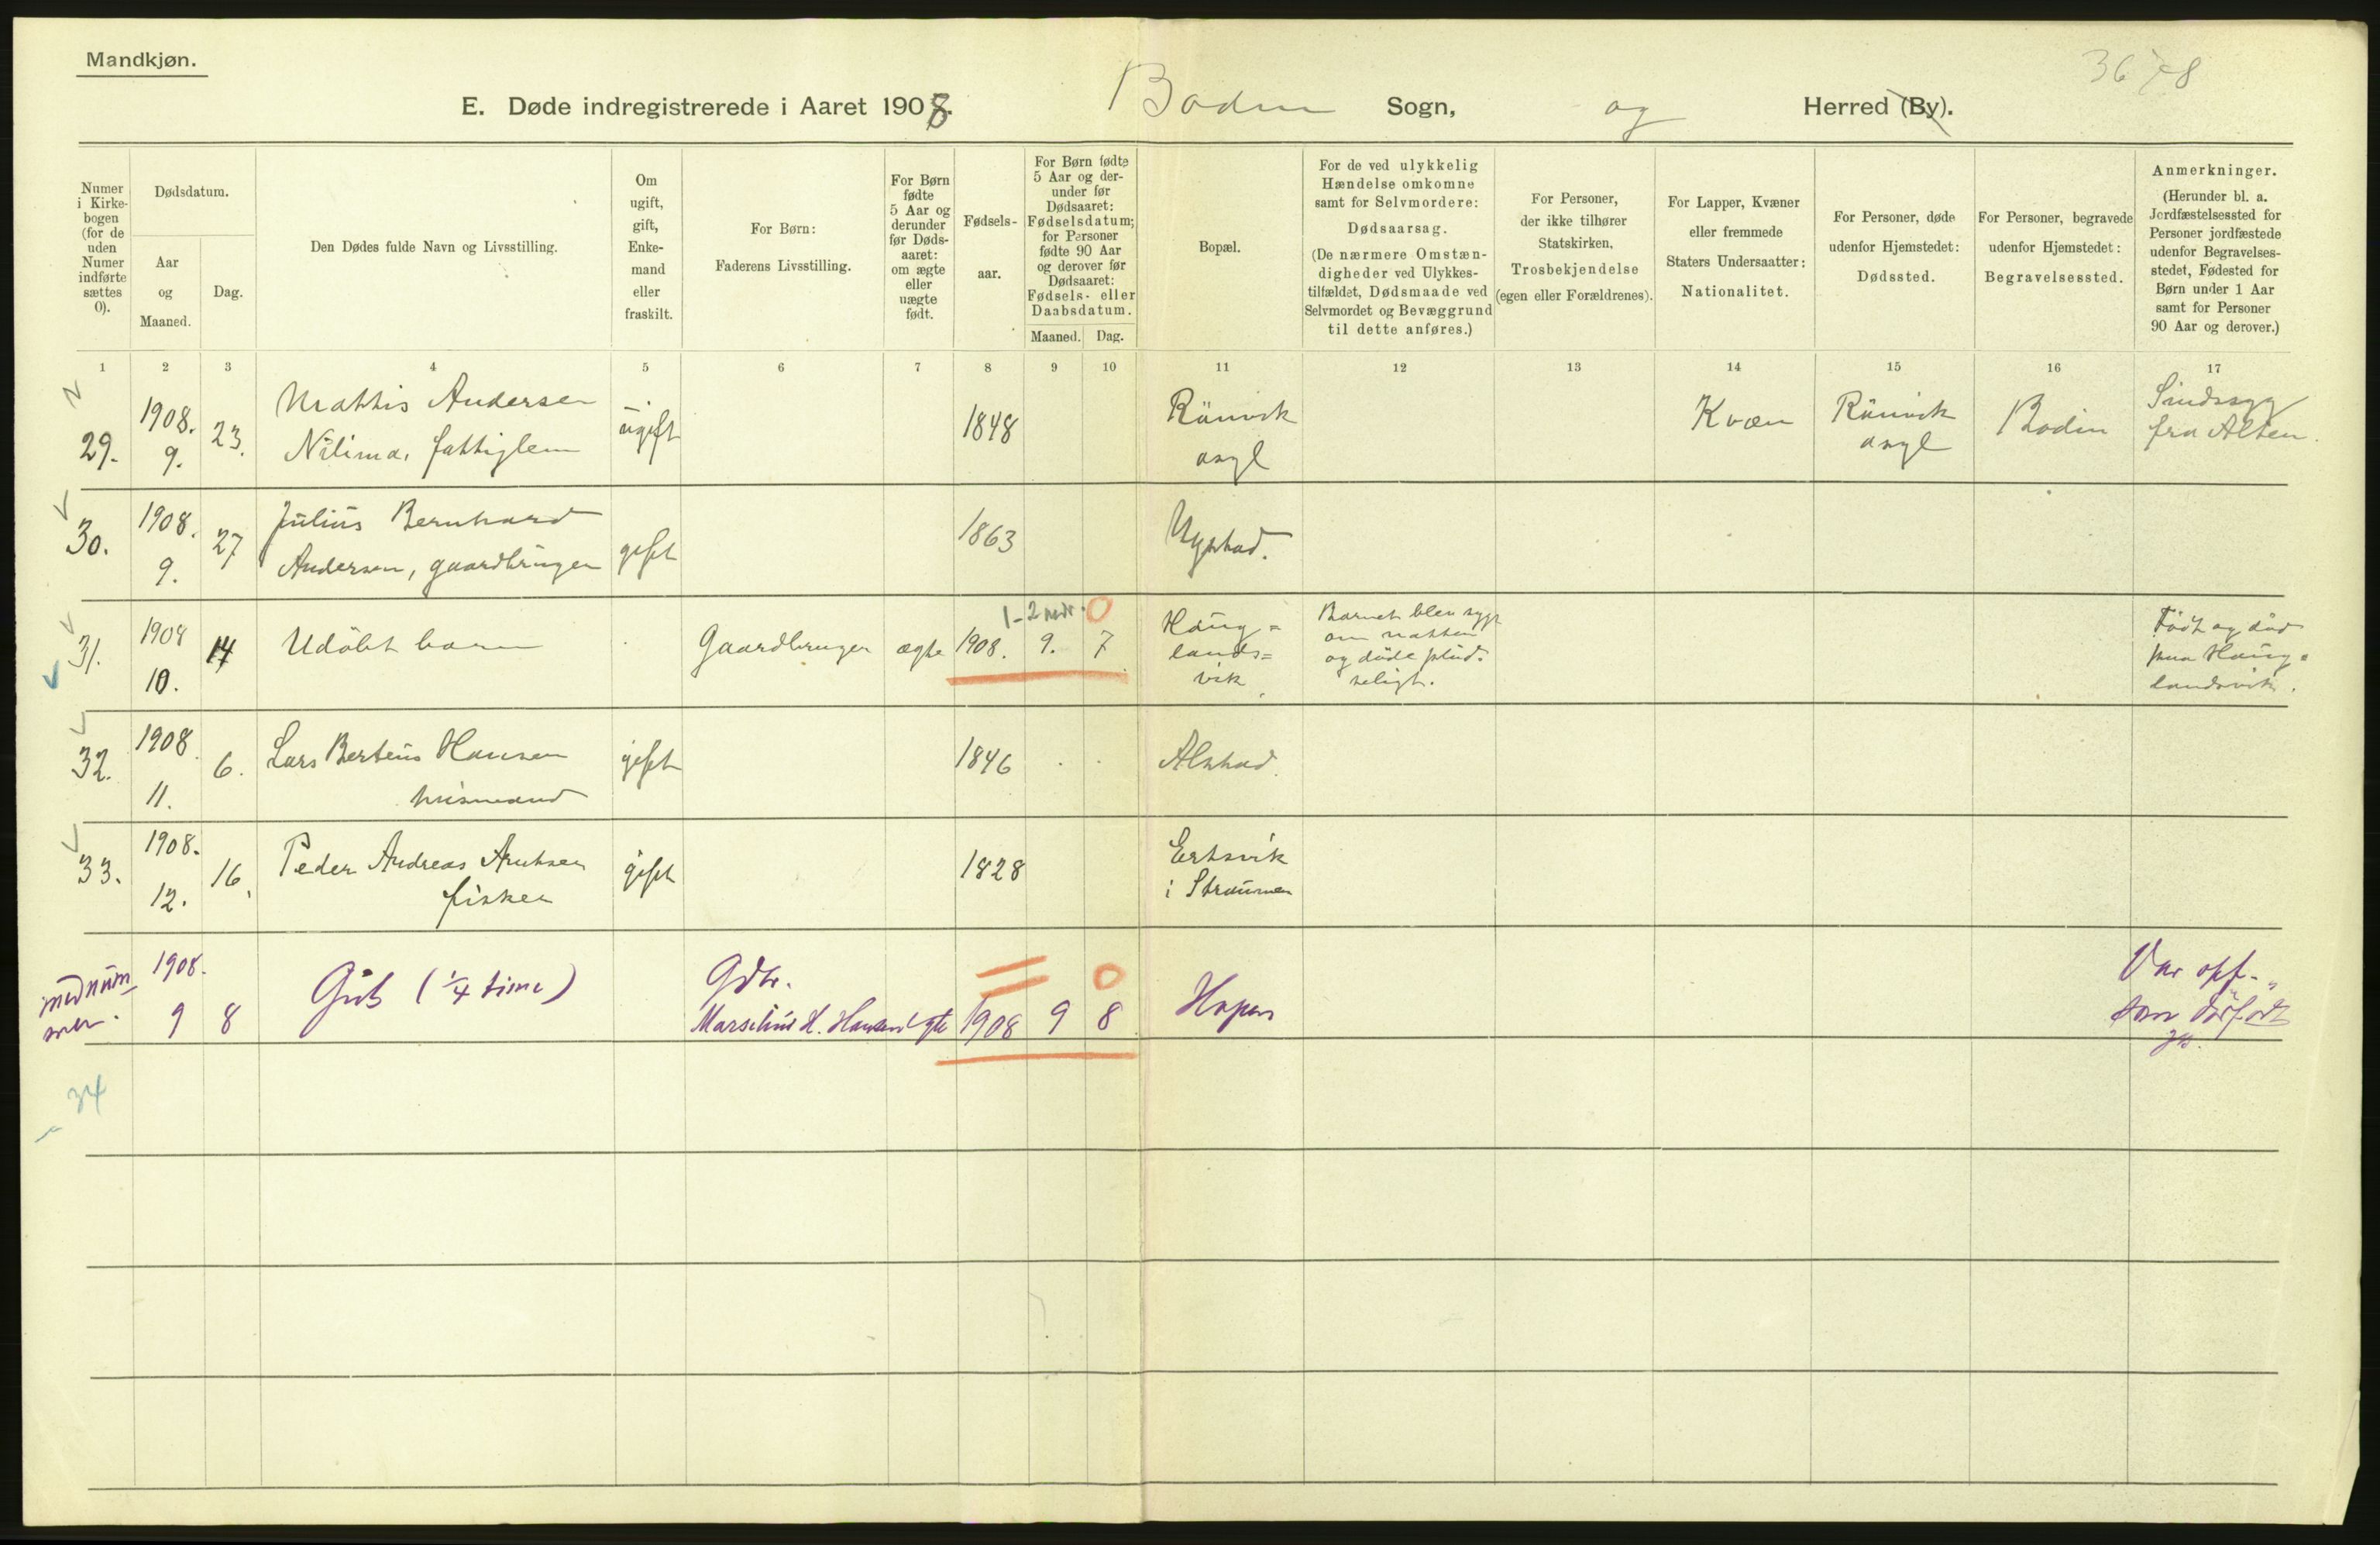 Mandkjøn.
3678
E. Døde indregistrerede i Aaret 1908. Bodin Sogn, og Herred (By).
Numer i Kirke-bogen (for de uden Numer indførte sættes 0).
Dødsdatum.
Aar og Maaned.
Dag.
Den Dødes fulde Navn og Livsstilling.
Om ugift, gift, Enke-mand eller fraskilt.
For Børn:
Faderens Livsstilling.
For Børn fødte 5 Aar og derunder før Døds-aaret: om ægte eller uægte født.
Fødsels-aar.
For Børn fødte 5 Aar og der-under før Dødsaaret: Fødselsdatum; for Personer fødte 90 Aar og derover før Dødsaaret: Fødsels- eller Daabsdatum.
Maaned. Dag.
Bopæl.
For de ved ulykkelig Hændelse omkomne samt for Selvmordere:
Dødsaarsag.
(De nærmere Omstæn-digheder ved Ulykkes-tilfældet, Dødsmaade ved Selvmordet og Bevæggrund til dette anføres.)
For Personer, der ikke tilhører Statskirken,
Trosbekjendelse
(egen eller Forældrenes).
For Lapper, Kvæner eller fremmede Staters Undersaatter:
Nationalitet.
For Personer, døde udenfor Hjemstedet:
Dødssted.
For Personer, begravede udenfor Hjemstedet:
Begravelsessted.
Anmerkninger.
(Herunder bl. a. Jordfæstelsessted for Personer jordfæstede udenfor Begravelses-stedet, Fødested for Børn under 1 Aar samt for Personer 90 Aar og derover.)
1 2 3 4 5 6 7 8 9 10 11 12 13 14 15 16 17
29. 1908. 9. 23. Mathis Andersen
Nilima, fattiglem
ugift 1848 Rönvik
asyl
Kvæn Rönvik
asyl
Bodin Sindssyg
fra Alten.
30. 1908. 9. 27 Julius Bernhard
Andersen, gaardbruger
gift 1863 Nystad.
31. 1908 10. 14 Udöbt barn Gaardbruger ægte 1908. 9. 7
1-2 mdr. 0
Haug=
lands=
vik
Barnet blev sygt
om natten
og döde plud-
seligt.
Födt og död
paa Haug=
landsvik.
32. 1908. 11. 6. Lars Berteus Hansen
husmand
gift 1846 Alstad.
33. 1908. 12. 16. Peder Andreas Arntsen
fisker
gift 1828 Ertsvik
i Straumen
uden num
mer.
1908. 9 8 Gut (1/4 time) Gdbr.
Marselius H. Hansen ægte 1908 9 8
0
Hopen
Var opf.
som dödfödt
34